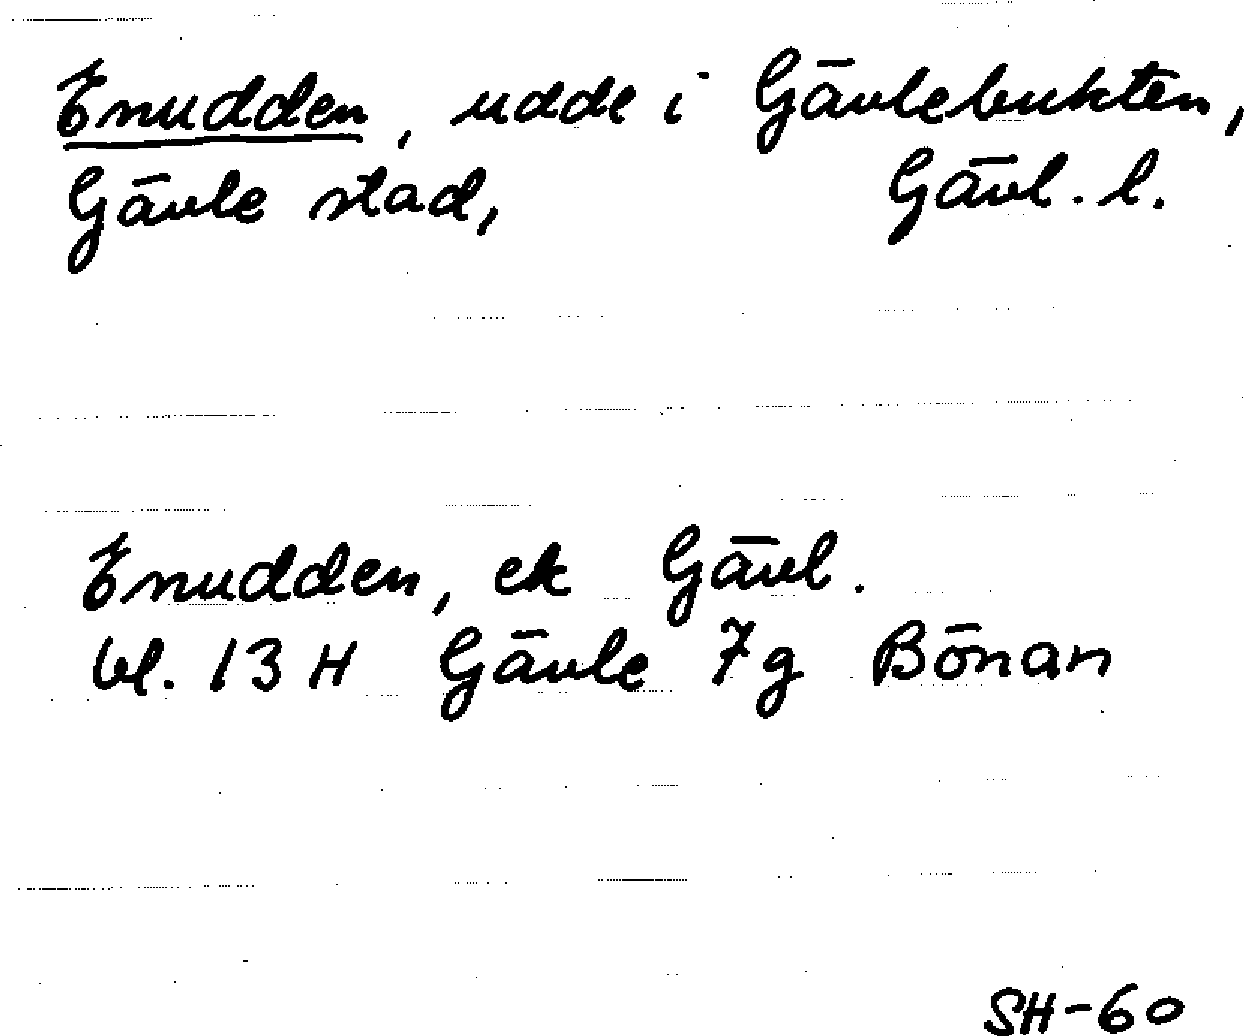 Enudden, udde i Gävlebukten,
Gävle stad, Gävl. l.
Enudden, ek Gävl.
bl. 13 H Gävle 7g Bönan
SH-60